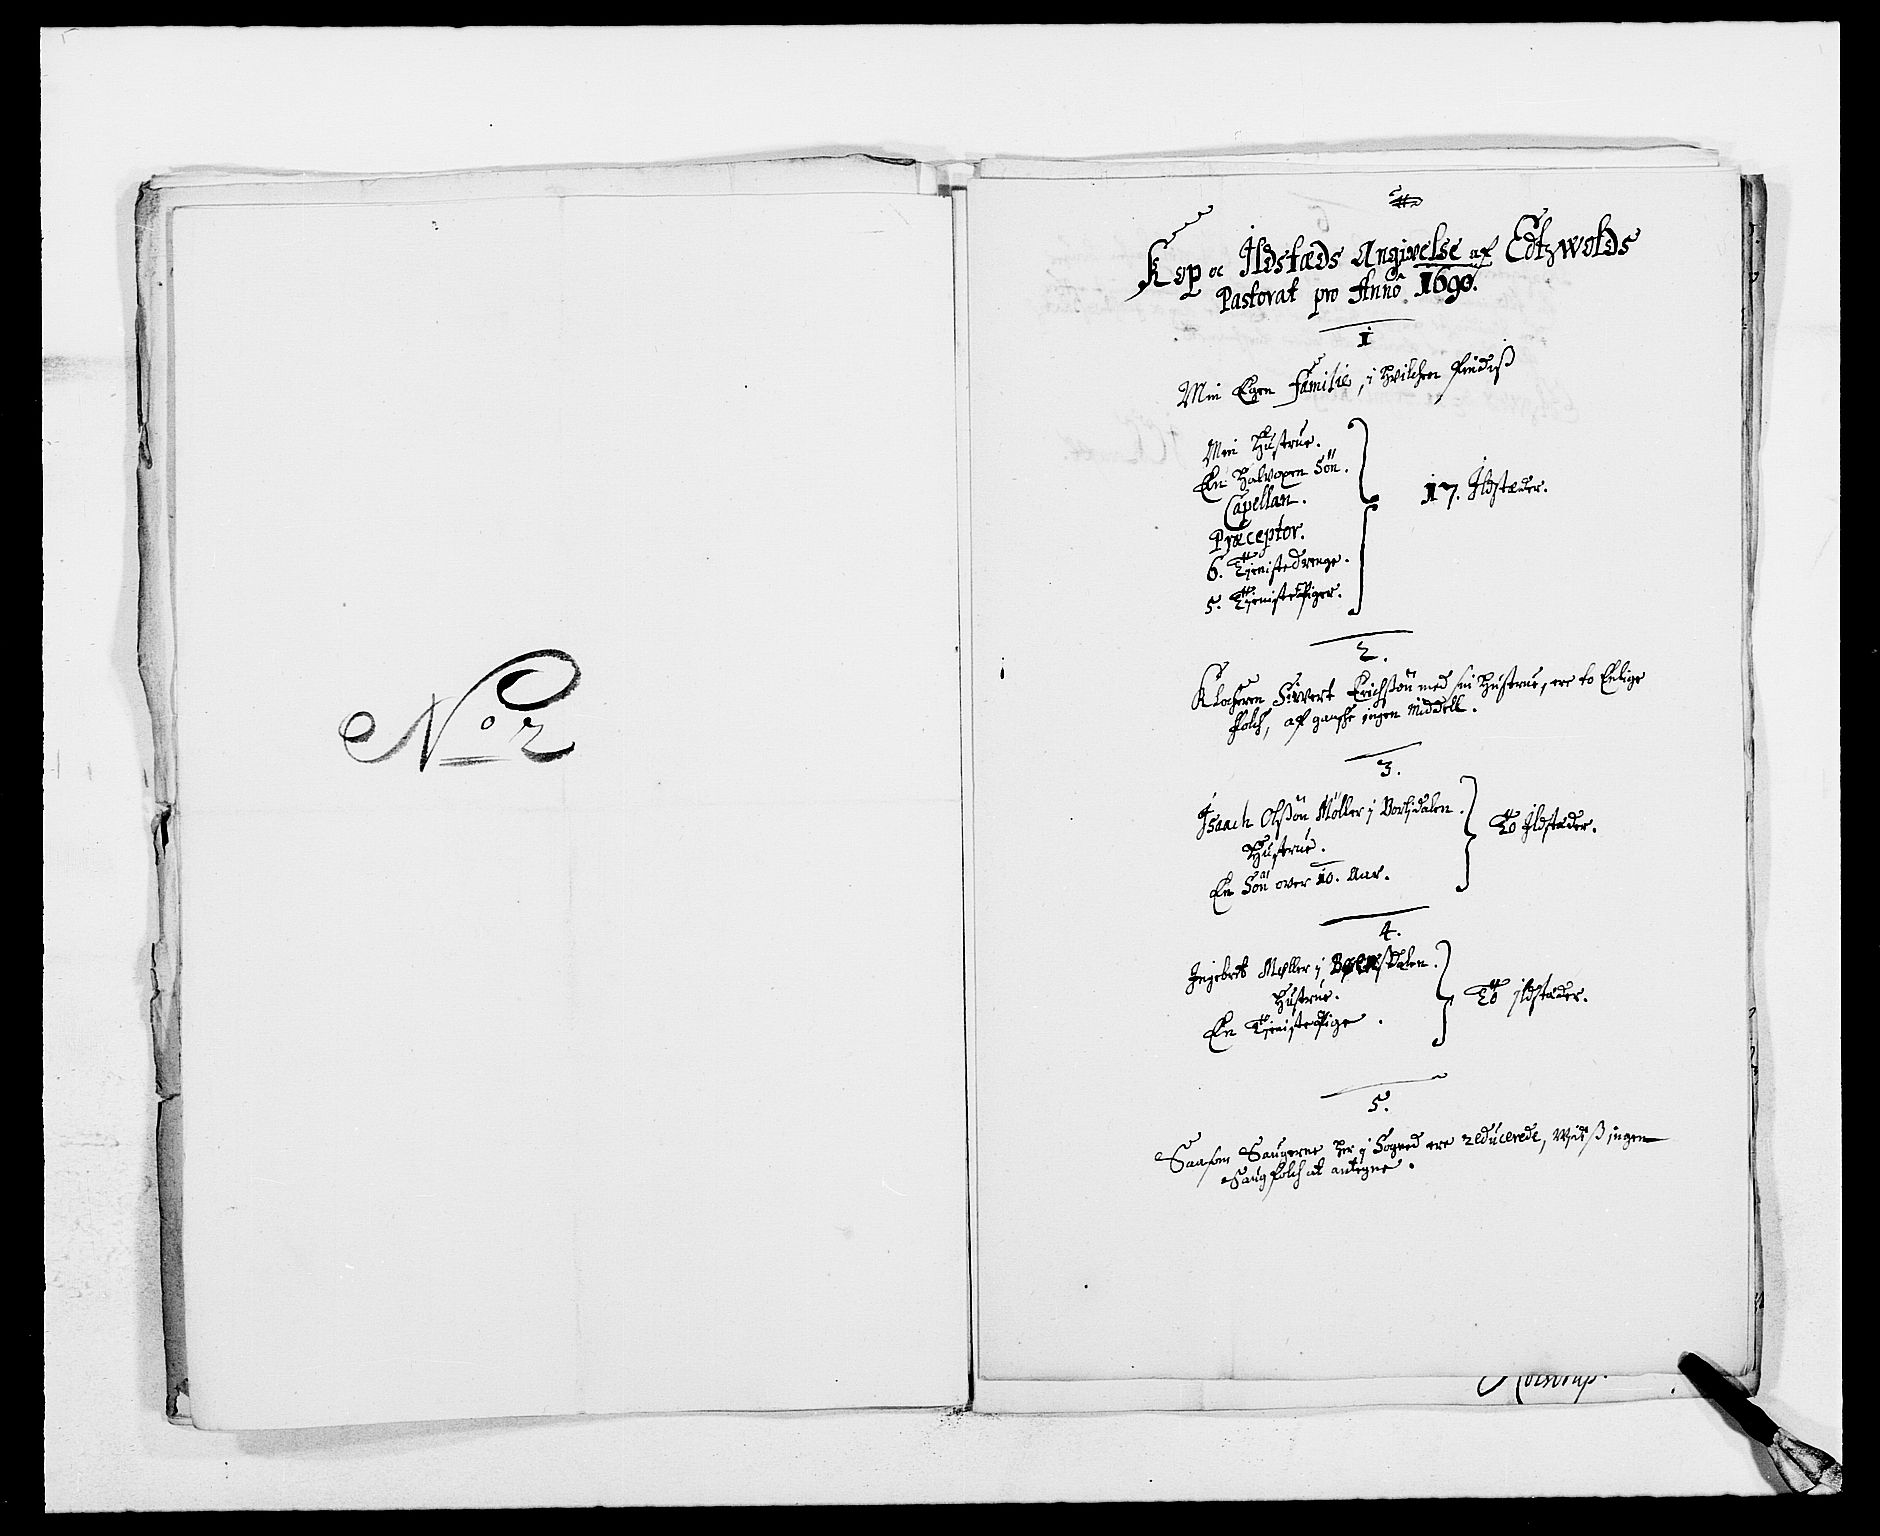 No 2
Kop oc Ildstæds Angivelse af Edtzwolds
Pastorat pro Anno 1690.
1
Min Egen Familie, i hvilchen findiß
Min Hustrue.
En halvoxen Søn.
Capellan.
Præceptor.
6. Tienistedrenge.
5. Tienistepiger.
17. Ildstæder.
2.
Klocheren Sivvert Erichsøn med sin Hustrue, ere to Enlige
Folch, af gansche ingen Middell.
3.
Isaach Olsøn Møller i
Hustrue.
En Søn over 10. Aar.
To Ildstæder.
4.
Ingebret Møller i
Hustrue.
En Tienistepige.
To Ildstæder.
5.
Saasom Saugerne her i Sogned ere reducerede, Vidiß ingen
Saugfolch at antegne.